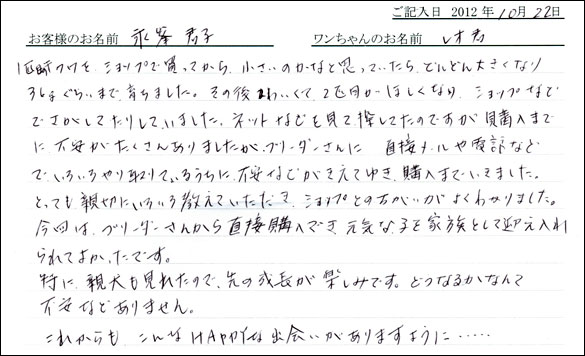 ご記入日 2012 年 10月 22日
お客様のお名前 永峯 君子 ワンちゃんのお名前 レオ君
1匹目チワワを、ショップで買ってから、小さいのかなと思っていたら、どんどん大きくなり
3kgぐらいまで育ちました。その後かわいくて2匹目がほしくなり、ショップなど
でさがしてたりしていました。ネットなども見て探してたのですが購入まで
に不安がたくさんありましたが、ブリーダーさんに 直接メールや電話など
でいろいろやり取りしているうちに、不安などがきえてゆき、購入までいきました。
とっても親切にいろいろ教えていただき、ショップとのちがいがよくわかりました。
今回は、ブリーダーさんから直接購入でき元気な子を家族として迎え入れ
られてよかったです。
特に、親犬も見れたので、先の成長が楽しみです。どうなるかなんて
不安などありません。
これからも こんな HAPPYな出会いがありますように・・・・・